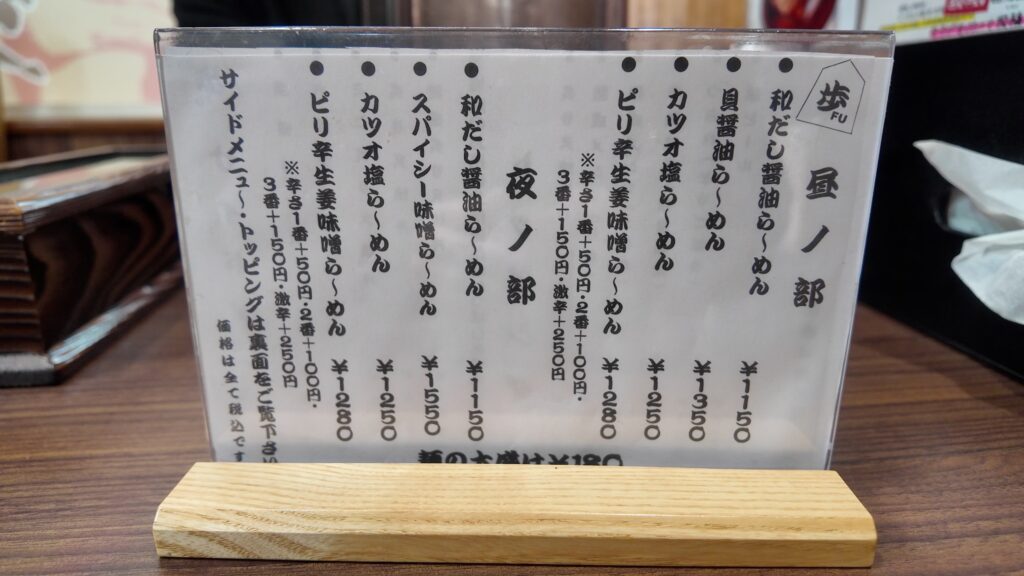 歩
FU
昼ノ部
●和だし醤油ら〜めん ¥1150
●貝醤油ら〜めん ¥1350
●カツオ塩ら〜めん ¥1250
●ピリ辛生姜味噌ら〜めん ¥1280
※辛さ1番+50円・2番+100円・
3番+150円・激辛+250円
夜ノ部
●和だし醤油ら〜めん ¥1150
●スパイシー味噌ら〜めん ¥1550
●カツオ塩ら〜めん ¥1250
●ピリ辛生姜味噌ら〜めん ¥1280
※辛さ1番+50円・2番+100円・
3番+150円・激辛+250円
サイドメニュ〜・トッピングは裏面をご覧下さい
価格は全て税込です
麺の大盛は¥180